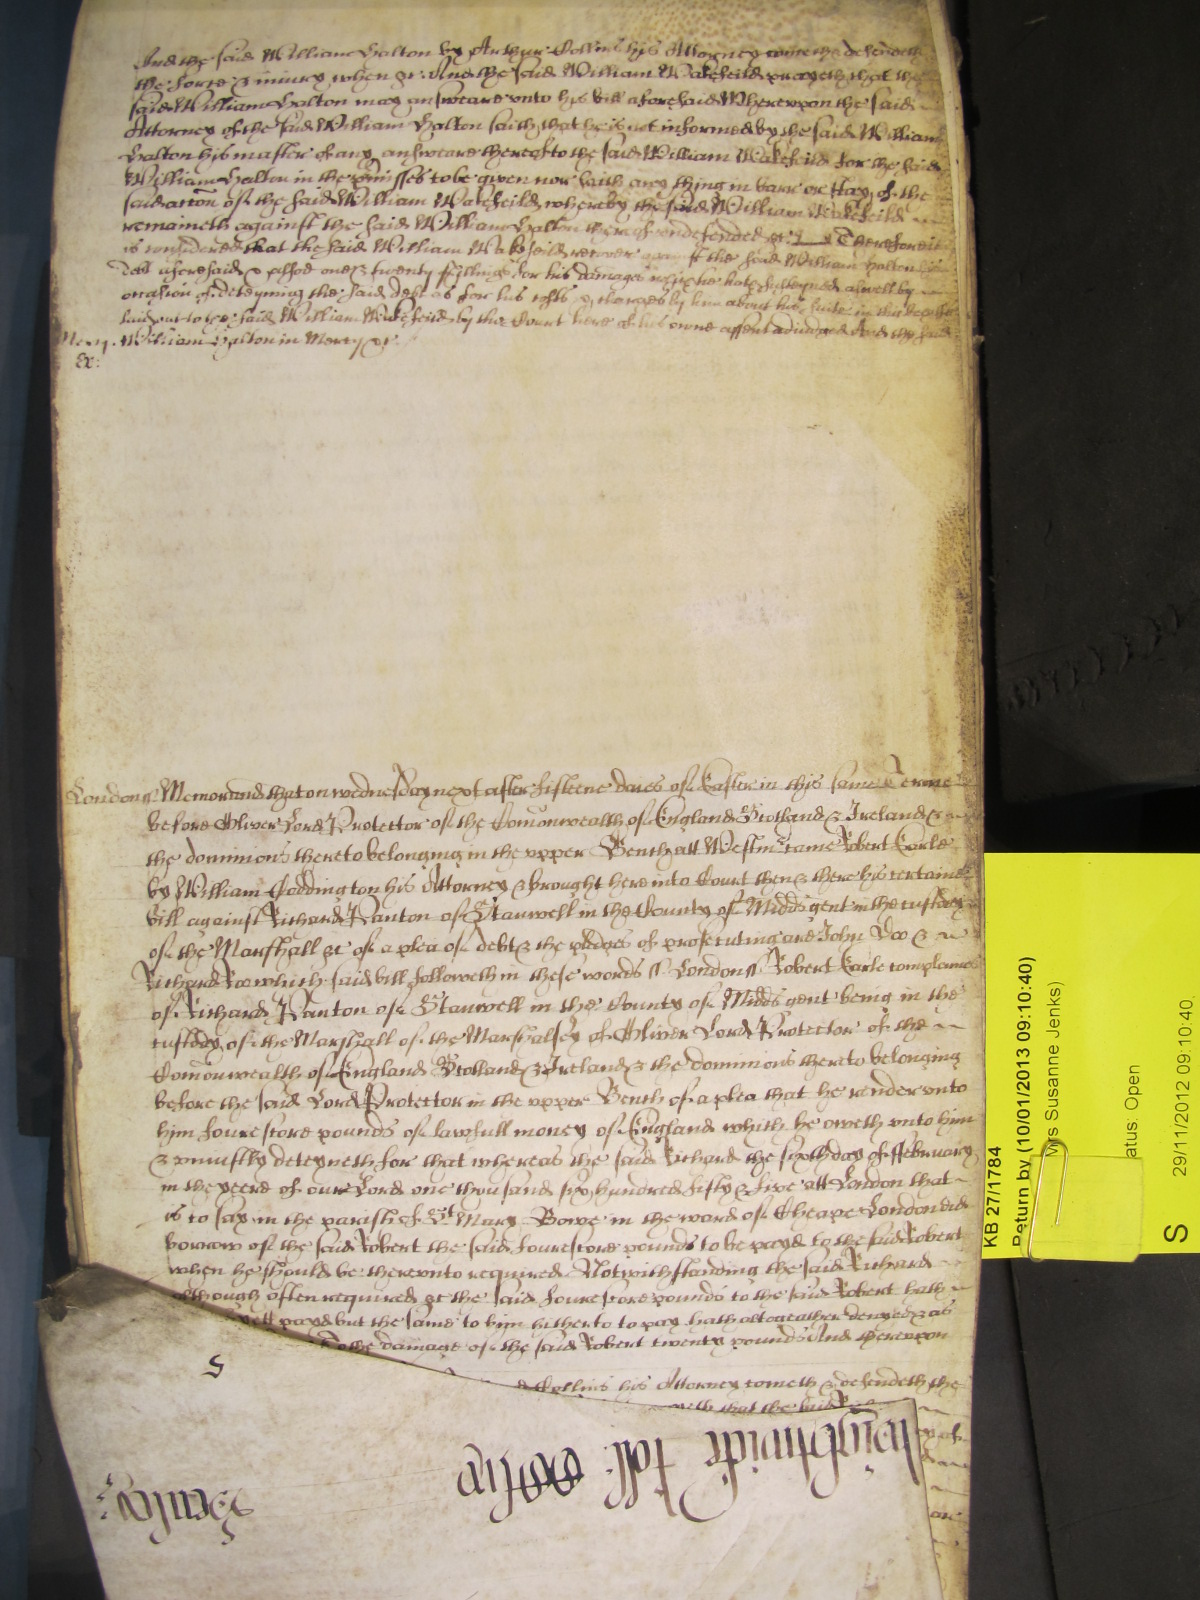 And the said William Halton by Arthur Collins his Attorney cometh & defendeth
the force & iniury when &c And the said William Wakefeild prayeth that the
said William Halton may answeare vnto his bill aforesaid Wherevpon the said
Attorney of the said William Halton saith that he is not informed by the said William
Halton his master of any answeare thereof to the said William Wakefeild for the said
William Halton in the pmisses to be given nor saith any thing in barr or stay of the
said accon of the said William Wakefeild whereby the said William Wakefeild
remaineth against the said William Halton thereof vndefended &c Therefore it
is considered that the said William Wakefeild recover against the said William Halton his
debt aforesaid & alsoe one & twenty shillings for his damages which he hath susteyned aswell by
occasion of deteyning the said debt as for his costs & charges by him about his suite in this behalfe
laid out to the said William Wakefeild by the Court here of his owne assent adiudged And the said
Mercy. William Halton in Mercy &c.
Ex:
London ss Memorand that on wednesday next after fifteene daies of Easter in this same Terme
before Oliver Lord Protector of the Comonwealth of England Scotland & Ireland &
the dominions thereto belonging in the vpper Bench att Westm came Robert Earle
by William Coddington his Attorney & brought here into Court then & there his certaine
bill against Richard Panton of Stanwell in the County of Midds gent in the custody
of the Marshall &c of a plea of debt & the pledges of prosecuting are John Doo &
Richard Roo which said bill followeth in these words ss London ss Robert Earle complaines
of Richard Panton of Stanwell in the County of Midds gent being in the
custody of the Marshall of the Marshalsey of Oliver Lord Protector of the
Comonwealth of England Scotland & Ireland & the dominions thereto belonging
before the said Lord Protector in the vpper Bench of a plea that he render vnto
him fourescore pounds of lawfull money of England which he oweth vnto him
& vniustly deteyneth for that whereas the said Richard the sixth day of ffebruary
in the yeere of our Lord one thousand six hundred fifty & five att London that
is to say in the parish of St Mary Bowe in the ward of Cheape London did
borrow of the said Robert the said fourescore pounds to be payd to the said Robert
when he should be therevnto required Notwithstanding the said Richard
although often required &c the said fourescore pounds to the said Robert hath
yett payd but the same to him hitherto to pay hath altogeather denyed & as
To the damage of the said Robert twenty pounds And therevpon
Collins his Attorney cometh & defendeth the
that the said
S
KB 27/1784
Return by (10/01/2013 09:10:40)
Susanne Jenks)
atus: Open
29/11/2012 09:10:40
S